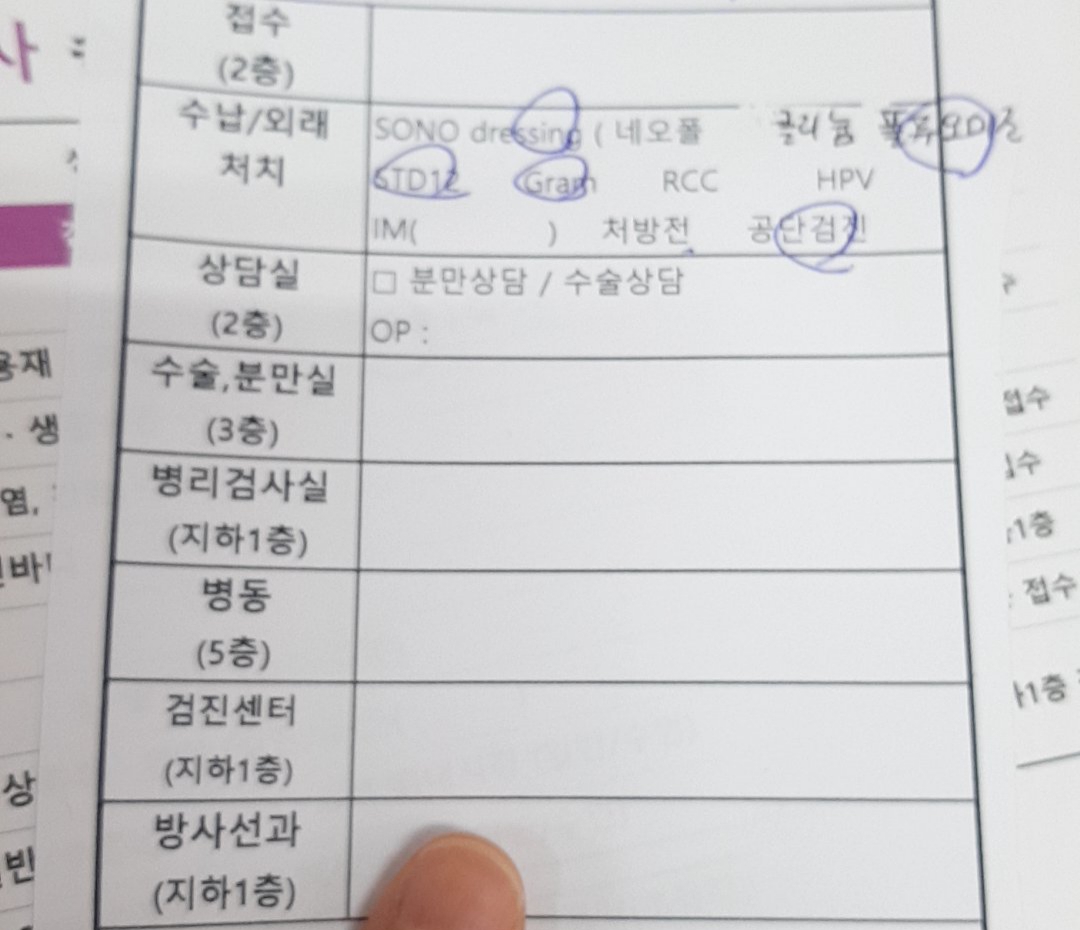 접수
(2층)
수납/외래
처치
SONO dressing ( 네오폴 글리눔
STD12 Gram RCC HPV
IM( ) 처방전 공단검진
상담실
(2층)
□ 분만상담 / 수술상담
OP :
수술,분만실
(3층)
병리검사실
(지하1층)
병동
(5층)
검진센터
(지하1층)
방사선과
(지하1층)
사
용재
생
염,
상
빈
접수
수
1층
접수
1층